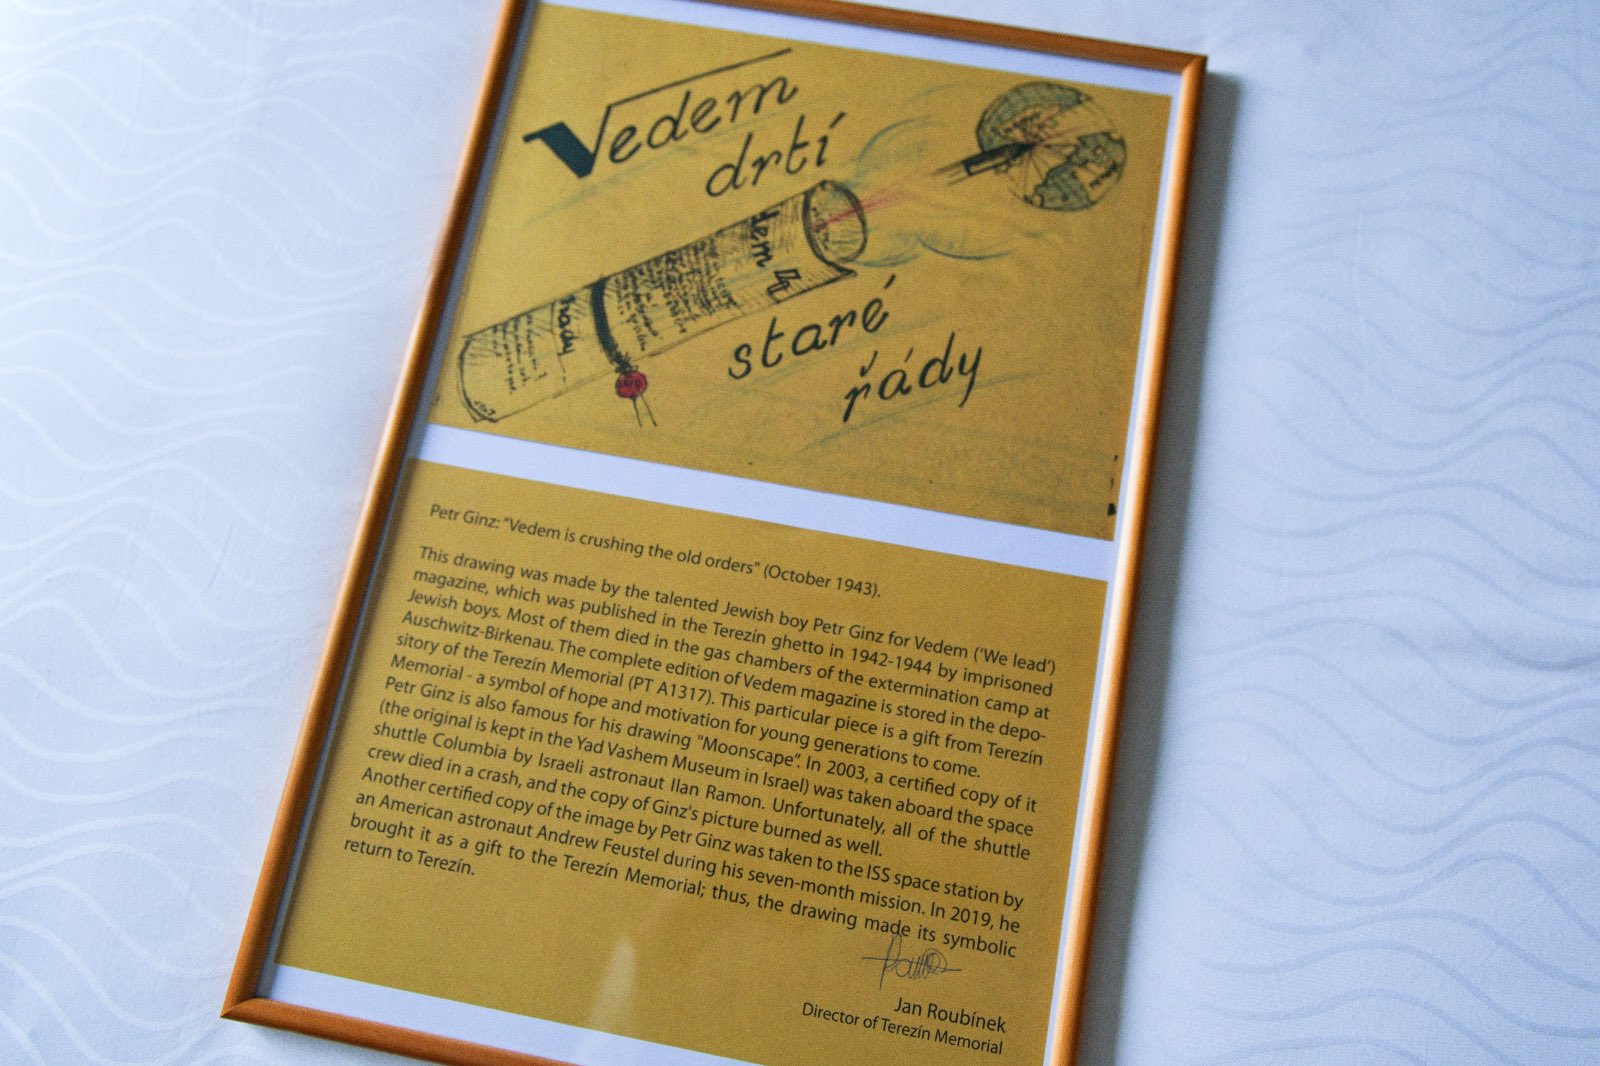 Vedem
drtí
staré
řády
dem 4
řády
Petr Ginz: "Vedem is crushing the old orders" (October 1943).
This drawing was made by the talented Jewish boy Petr Ginz for Vedem (‘We lead’)
magazine, which was published in the Terezín ghetto in 1942-1944 by imprisoned
Jewish boys. Most of them died in the gas chambers of the extermination camp at
Auschwitz-Birkenau. The complete edition of Vedem magazine is stored in the depo-
sitory of the Terezín Memorial (PT A1317). This particular piece is a gift from Terezín
Memorial - a symbol of hope and motivation for young generations to come.
Petr Ginz is also famous for his drawing "Moonscape". In 2003, a certified copy of it
(the original is kept in the Yad Vashem Museum in Israel) was taken aboard the space
shuttle Columbia by Israeli astronaut Ilan Ramon. Unfortunately, all of the shuttle
crew died in a crash, and the copy of Ginz's picture burned as well.
Another certified copy of the image by Petr Ginz was taken to the ISS space station by
an American astronaut Andrew Feustel during his seven-month mission. In 2019, he
brought it as a gift to the Terezín Memorial; thus, the drawing made its symbolic
return to Terezín.
Jan Roubínek
Director of Terezín Memorial